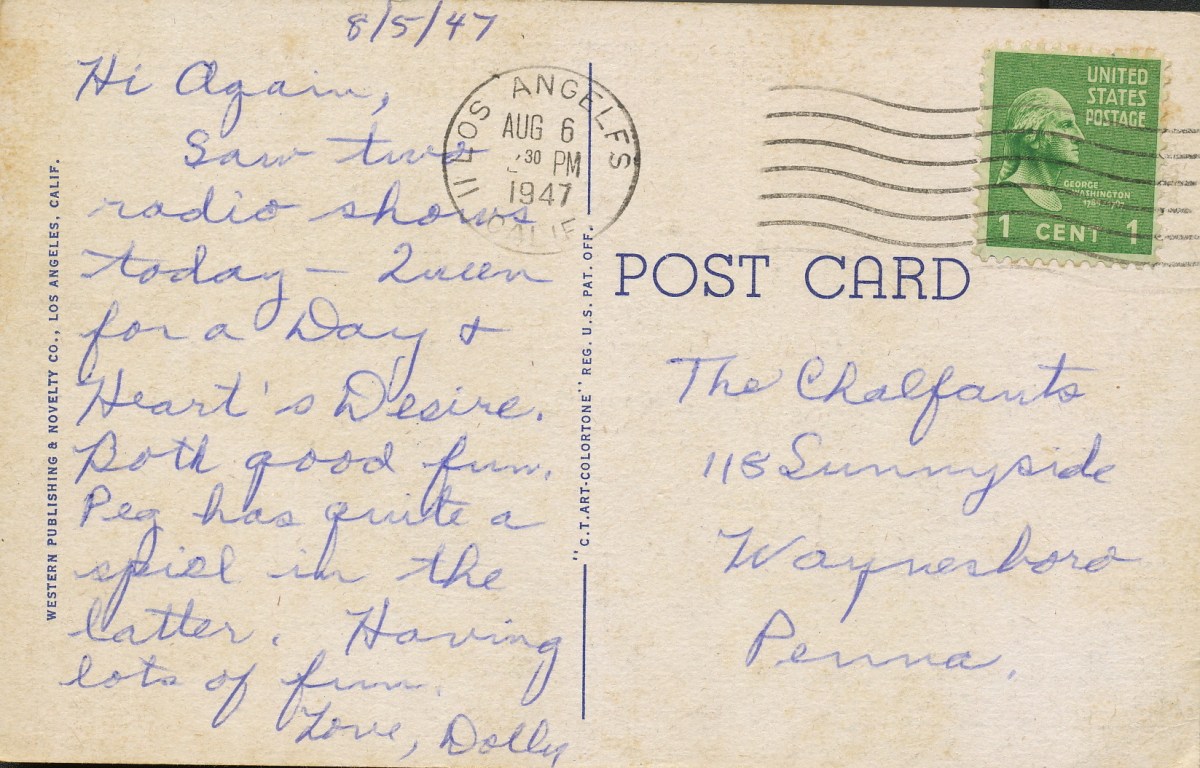 8/5/47
Hi Again,
Saw two
radio shows
today – Queen
for a Day &
Heart's Desire.
Both good fun.
Peg has quite a
spiel in the
latter. Having
lots of fun.
Love, Dolly
WESTERN PUBLISHING & NOVELTY CO., LOS ANGELES, CALIF.
"C.T. ART-COLORTONE" REG. U.S. PAT. OFF.
LOS ANGELES 11
AUG 6
30 PM
1947
CALIF
UNITED
STATES
POSTAGE
GEORGE
WASHINGTON
1 CENT 1
POST CARD
The Chalfants
118 Sunnyside
Waynesboro
Penna.